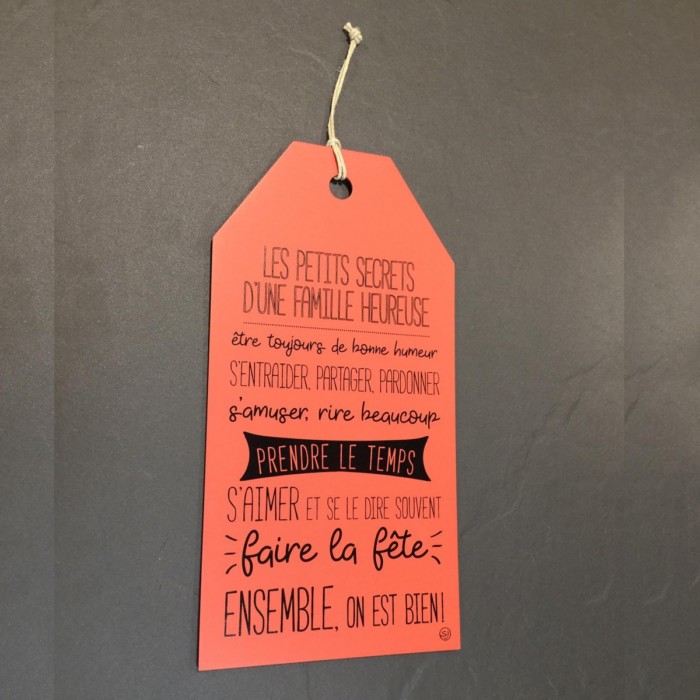 LES PETITS SECRETS
D'UNE FAMILLE HEUREUSE
être toujours de bonne humeur
S'ENTRAIDER, PARTAGER, PARDONNER
s'amuser, rire beaucoup
PRENDRE LE TEMPS
S'AIMER ET SE LE DIRE SOUVENT
faire la fête
ENSEMBLE, ON EST BIEN!